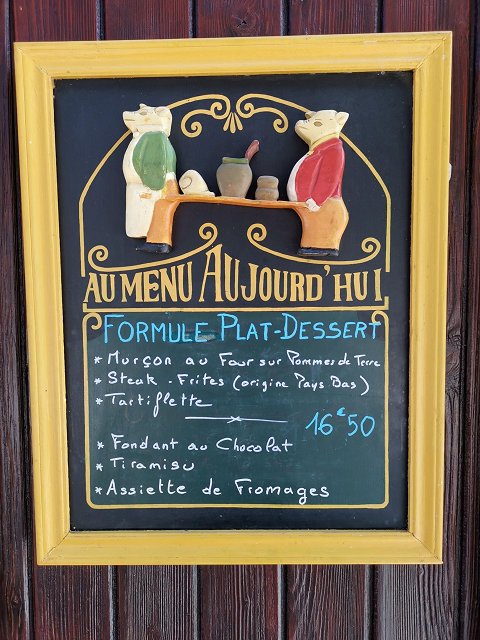 AU MENU AUJOURD'HUI
FORMULE PLAT-DESSERT
* Murçon au Four sur Pommes de Terre
* Steak - Frites (origine Pays Bas)
* Tartiflette
16€50
* Fondant au Chocolat
* Tiramisu
* Assiette de Fromages